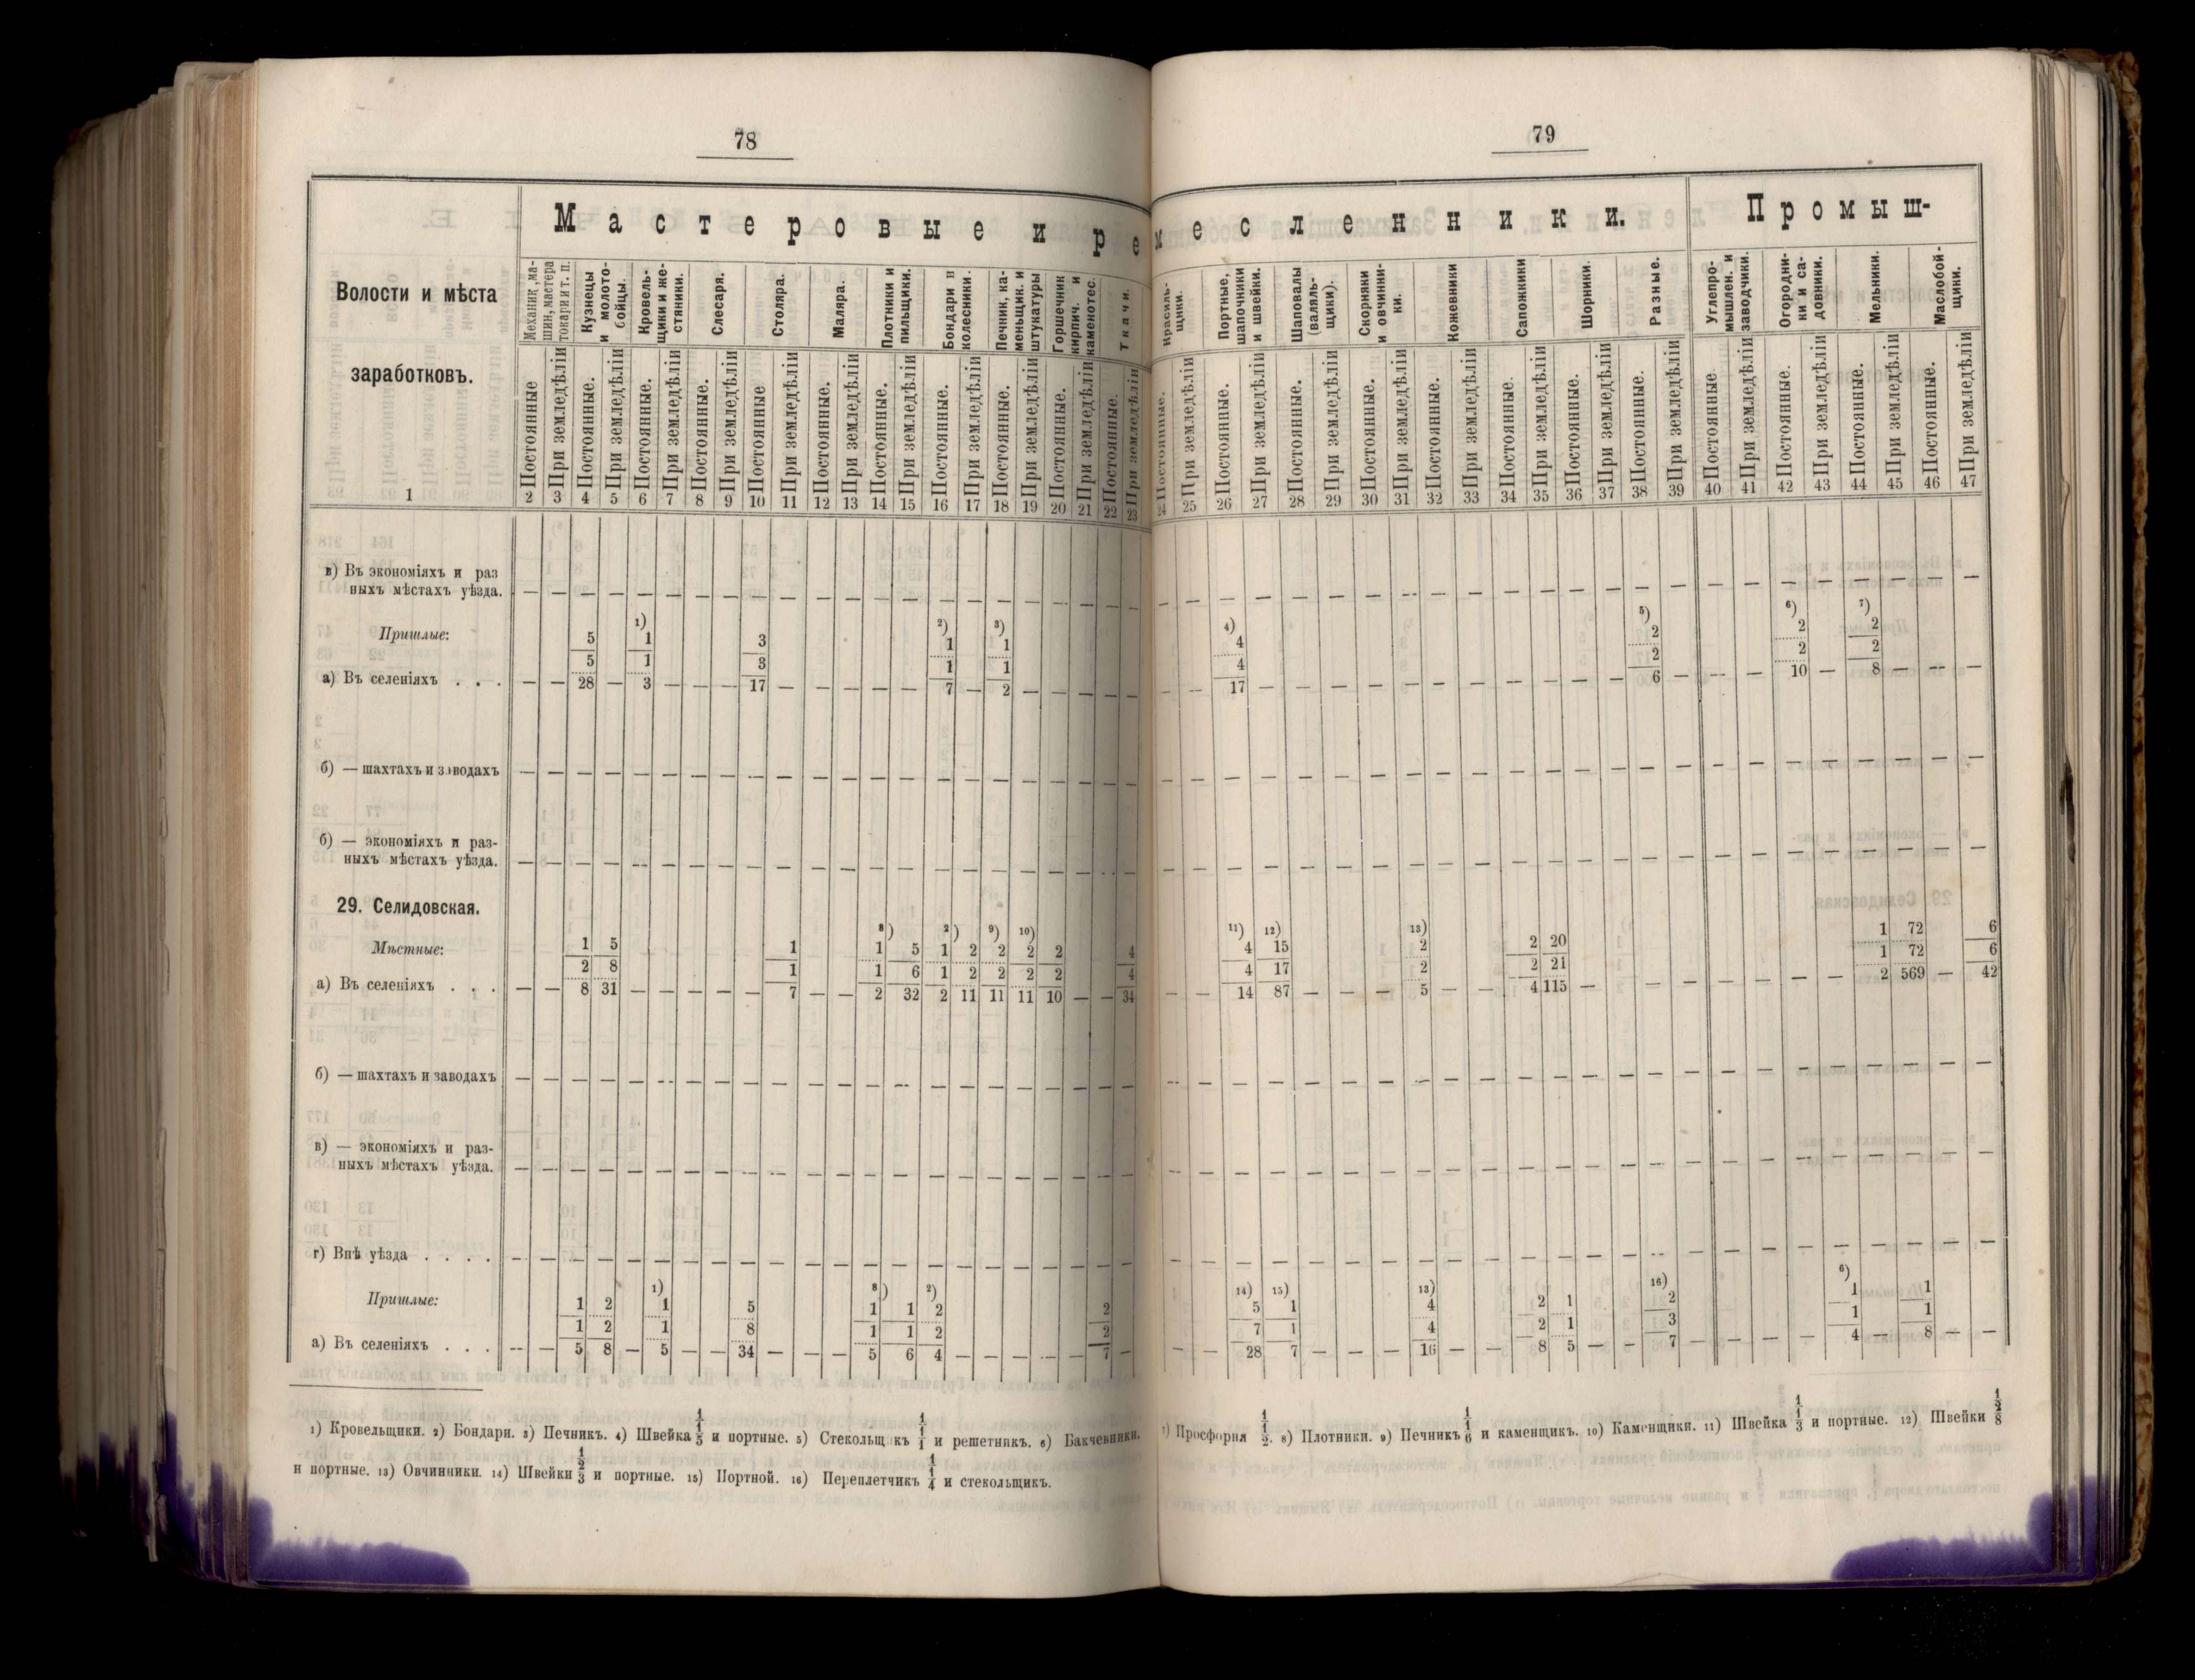 78
Мастеровые и ре
Волости и мѣста
заработковъ.
Механик, ма-
шин, мастера
токари и т. п.
Кузнецы
и молото-
бойцы.
Кровель-
щики и же-
стяники.
Слесаря.
Столяра.
Маляра.
Плотники и
пильщики.
Бондари и
колесники.
Печник, ка-
меньщик. и
штукатуры
Горшечник
кирпич. и
каменотес.
Ткачи.
Постоянные
При земледѣліи
Постоянные.
При земледѣліи
Постоянные.
При земледѣліи
Постоянные.
При земледѣліи
Постоянные
При земледѣліи
Постоянные.
При земледѣліи
Постоянные.
При земледѣліи
Постоянные.
При земледѣліи
Постоянные.
При земледѣліи
Постоянные.
При земледѣліи
Постоянные.
При земледѣліи
1 2 3 4 5 6 7 8 9 10 11 12 13 14 15 16 17 18 19 20 21 22 23
в) Въ экономіяхъ и раз
ныхъ мѣстахъ уѣзда. — — — — — — — — — — — — — — — — — — — — — —
1) 2) 3)
Пришлые: 5 1 3 1 1
5 1 3 1 1
а) Въ селеніяхъ . . . — — 28 — 3 — — — 17 — — — — — 7 — 2 — — — — —
б) — шахтахъ и заводахъ — — — — — — — — — — — — — — — — — — — — — —
б) — экономіяхъ и раз-
ныхъ мѣстахъ уѣзда. — — — — — — — — — — — — — — — — — — — — — —
29. Селидовская.
8) 2) 9) 10)
Мѣстные: 1 5 1 1 5 1 2 2 2 2 4
2 8 1 1 6 1 2 2 2 2 4
а) Въ селеніяхъ . . . — — 8 31 — — — — — 7 — — 2 32 2 11 11 11 10 — — 34
б) — шахтахъ и заводахъ — — — — — — — — — — — — — — — — — — — — — —
в) — экономіяхъ и раз-
ныхъ мѣстахъ уѣзда. — — — — — — — — — — — — — — — — — — — — — —
г) Внѣ уѣзда . . . . — — — — — — — — — — — — — — — — — — — — — —
1) 8) 2)
Пришлые: 1 2 1 5 1 1 2 2
1 2 1 8 1 1 2 2
а) Въ селеніяхъ . . . — — 5 8 — 5 — — 34 — — — 5 6 4 — — — — — 7 —
1) Кровельщики. 2) Бондари. 3) Печникъ. 4) Швейка 1/1/5 и портные. 5) Стекольщ къ 1/1/1 и решетникъ. 6) Бакчевники.
и портные. 13) Овчинники. 14) Швейки 1/2/3 и портные. 15) Портной. 16) Переплетчикъ 1/1/4 и стекольщикъ.
79
месленники.
Промыш-
Красиль-
щики.
Портные,
шапочники
и швейки.
Шаповалы
(валяль-
щики).
Скорняки
и овчинни-
ки.
Кожевники
Сапожники
Шорники.
Разные.
Углепро-
мышлен. и
заводчики.
Огородни-
ки и са-
довники.
Мельники.
Маслобой-
щики.
Постоянные.
При земледѣліи
Постоянные.
При земледѣліи
Постоянные.
При земледѣліи
Постоянные.
При земледѣліи
Постоянные.
При земледѣліи
Постоянные.
При земледѣліи
Постоянные.
При земледѣліи
Постоянные.
При земледѣліи
Постоянные
При земледѣліи
Постоянные.
При земледѣліи
Постоянные.
При земледѣліи
Постоянные.
При земледѣліи
24 25 26 27 28 29 30 31 32 33 34 35 36 37 38 39 40 41 42 43 44 45 46 47
— — — — — — — — — — — — — — — — — — — — — — — —
4) 5) 6) 7)
4 2 2 2
4 2 2 2
— — 17 — — — — — — — — — — — 6 — — — 10 — 8 — — —
— — — — — — — — — — — — — — — — — — — — — — — —
— — — — — — — — — — — — — — — — — — — — — — — —
11) 12) 13)
4 15 2 2 20 1 72 6
4 17 2 2 21 1 72 6
— — 14 87 — — — 5 — — 4 115 — — — — — — — — 2 569 — 42
— — — — — — — — — — — — — — — — — — — — — — — —
— — — — — — — — — — — — — — — — — — — — — — — —
— — — — — — — — — — — — — — — — — — — — — — — —
14) 15) 13) 16) 6)
5 1 4 2 1 2 1 1
7 1 4 2 1 3 1 1
— — 28 7 — — — 16 — — 8 5 — — 7 — — — — 4 — 8 — —
7) Просфорня 1/1/2. 8) Плотники. 9) Печникъ 1/1/6 и каменщикъ. 10) Каменщики. 11) Швейка 1/1/3 и портные. 12) Швейки 1/2/8